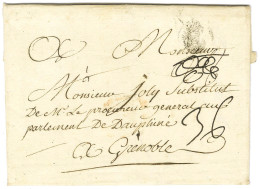 A Monsieur
Monsieur Joly Substitut
De Mr Le procureur general au
parlement De Dauphiné
A Grenoble